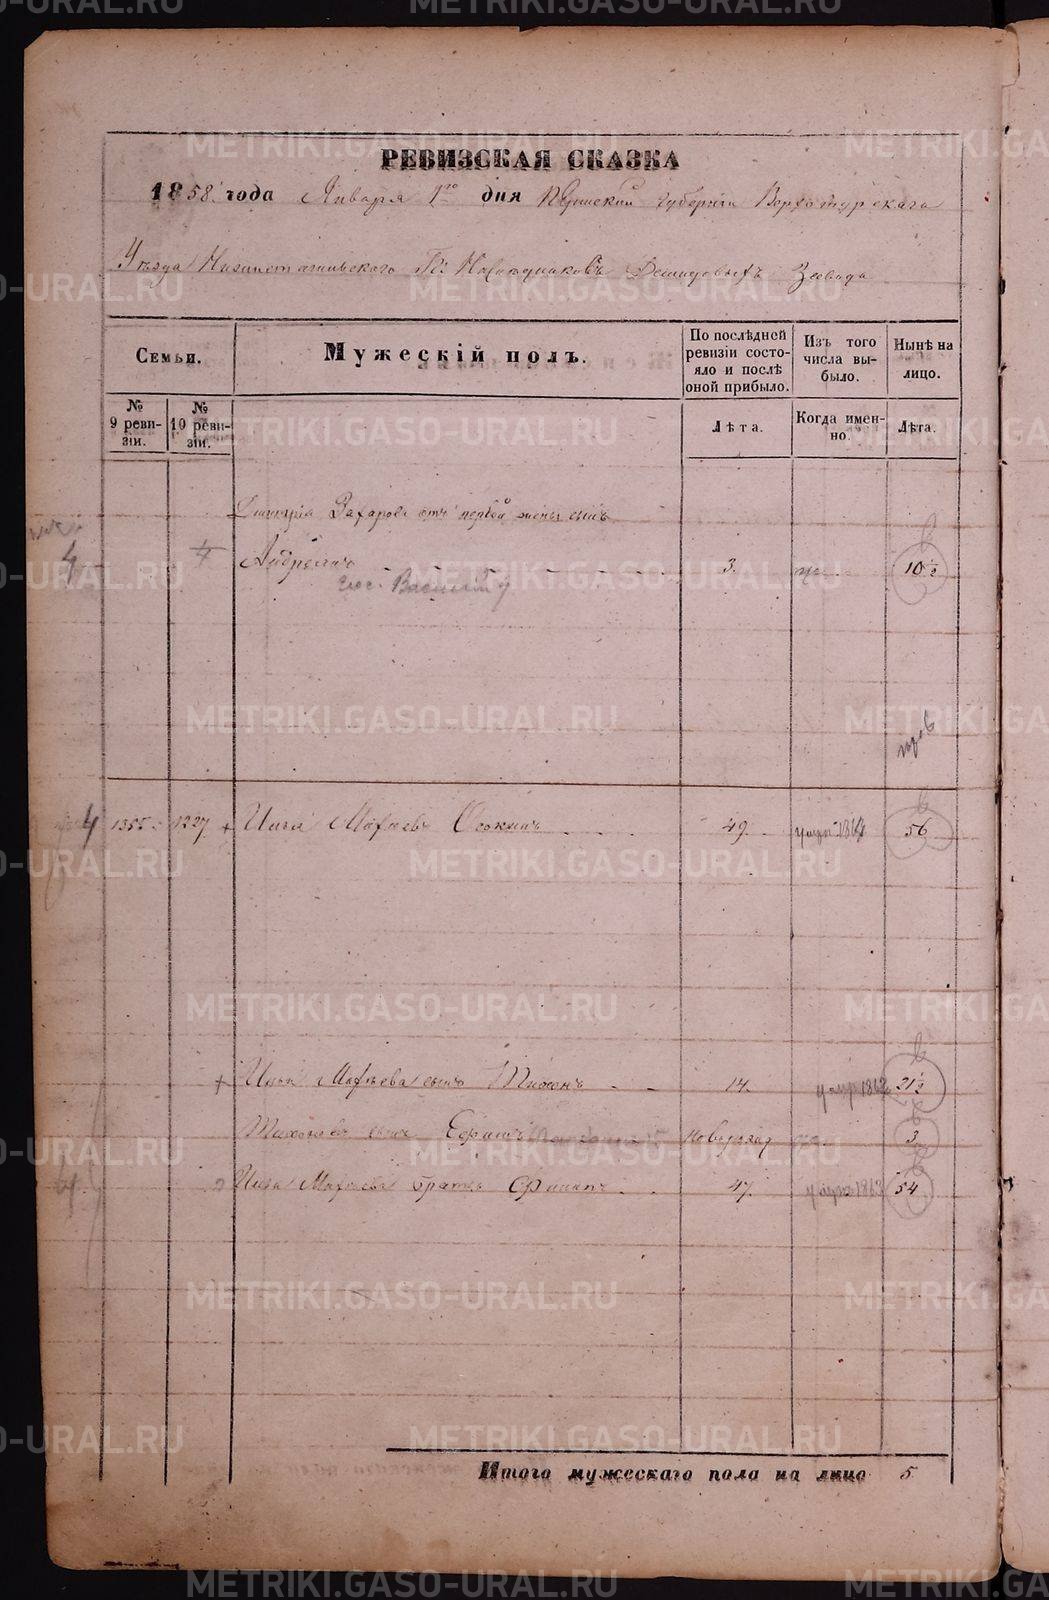 РЕВИЗСКАЯ СКАЗКА
1858 года Января 1го дня Пермской Губернии Верхотурскаго
Уѣзда Нижнетагильскаго Гг. Наслѣдниковъ Демидовыхъ Завода
Семьи.
Мужескiй полъ.
По послѣдней ревизiи состо-
яло и послѣ оной прибыло.
Изъ того числа вы-
было.
Нынѣ на лицо.
№ 9 реви-
зiи.
№ 10 реви-
зiи.
Лѣта.
Когда имен-
но.
Лѣта.
Захарова отъ первой жены сынъ
4 4 Андреянъ 3. 10½
Василий
4 1355 1227 + Мафѣевъ Осокинъ 49. умер 1864 56
+ Мафѣева сынъ Тихонъ 14. умер 1862 21½
Тихонова сынъ Ефимъ 3
Мафѣева братъ Филипъ 47. умер 1863 54
Итого мужескаго пола на лицо 5.
METRIKI.GASO-URAL.RU